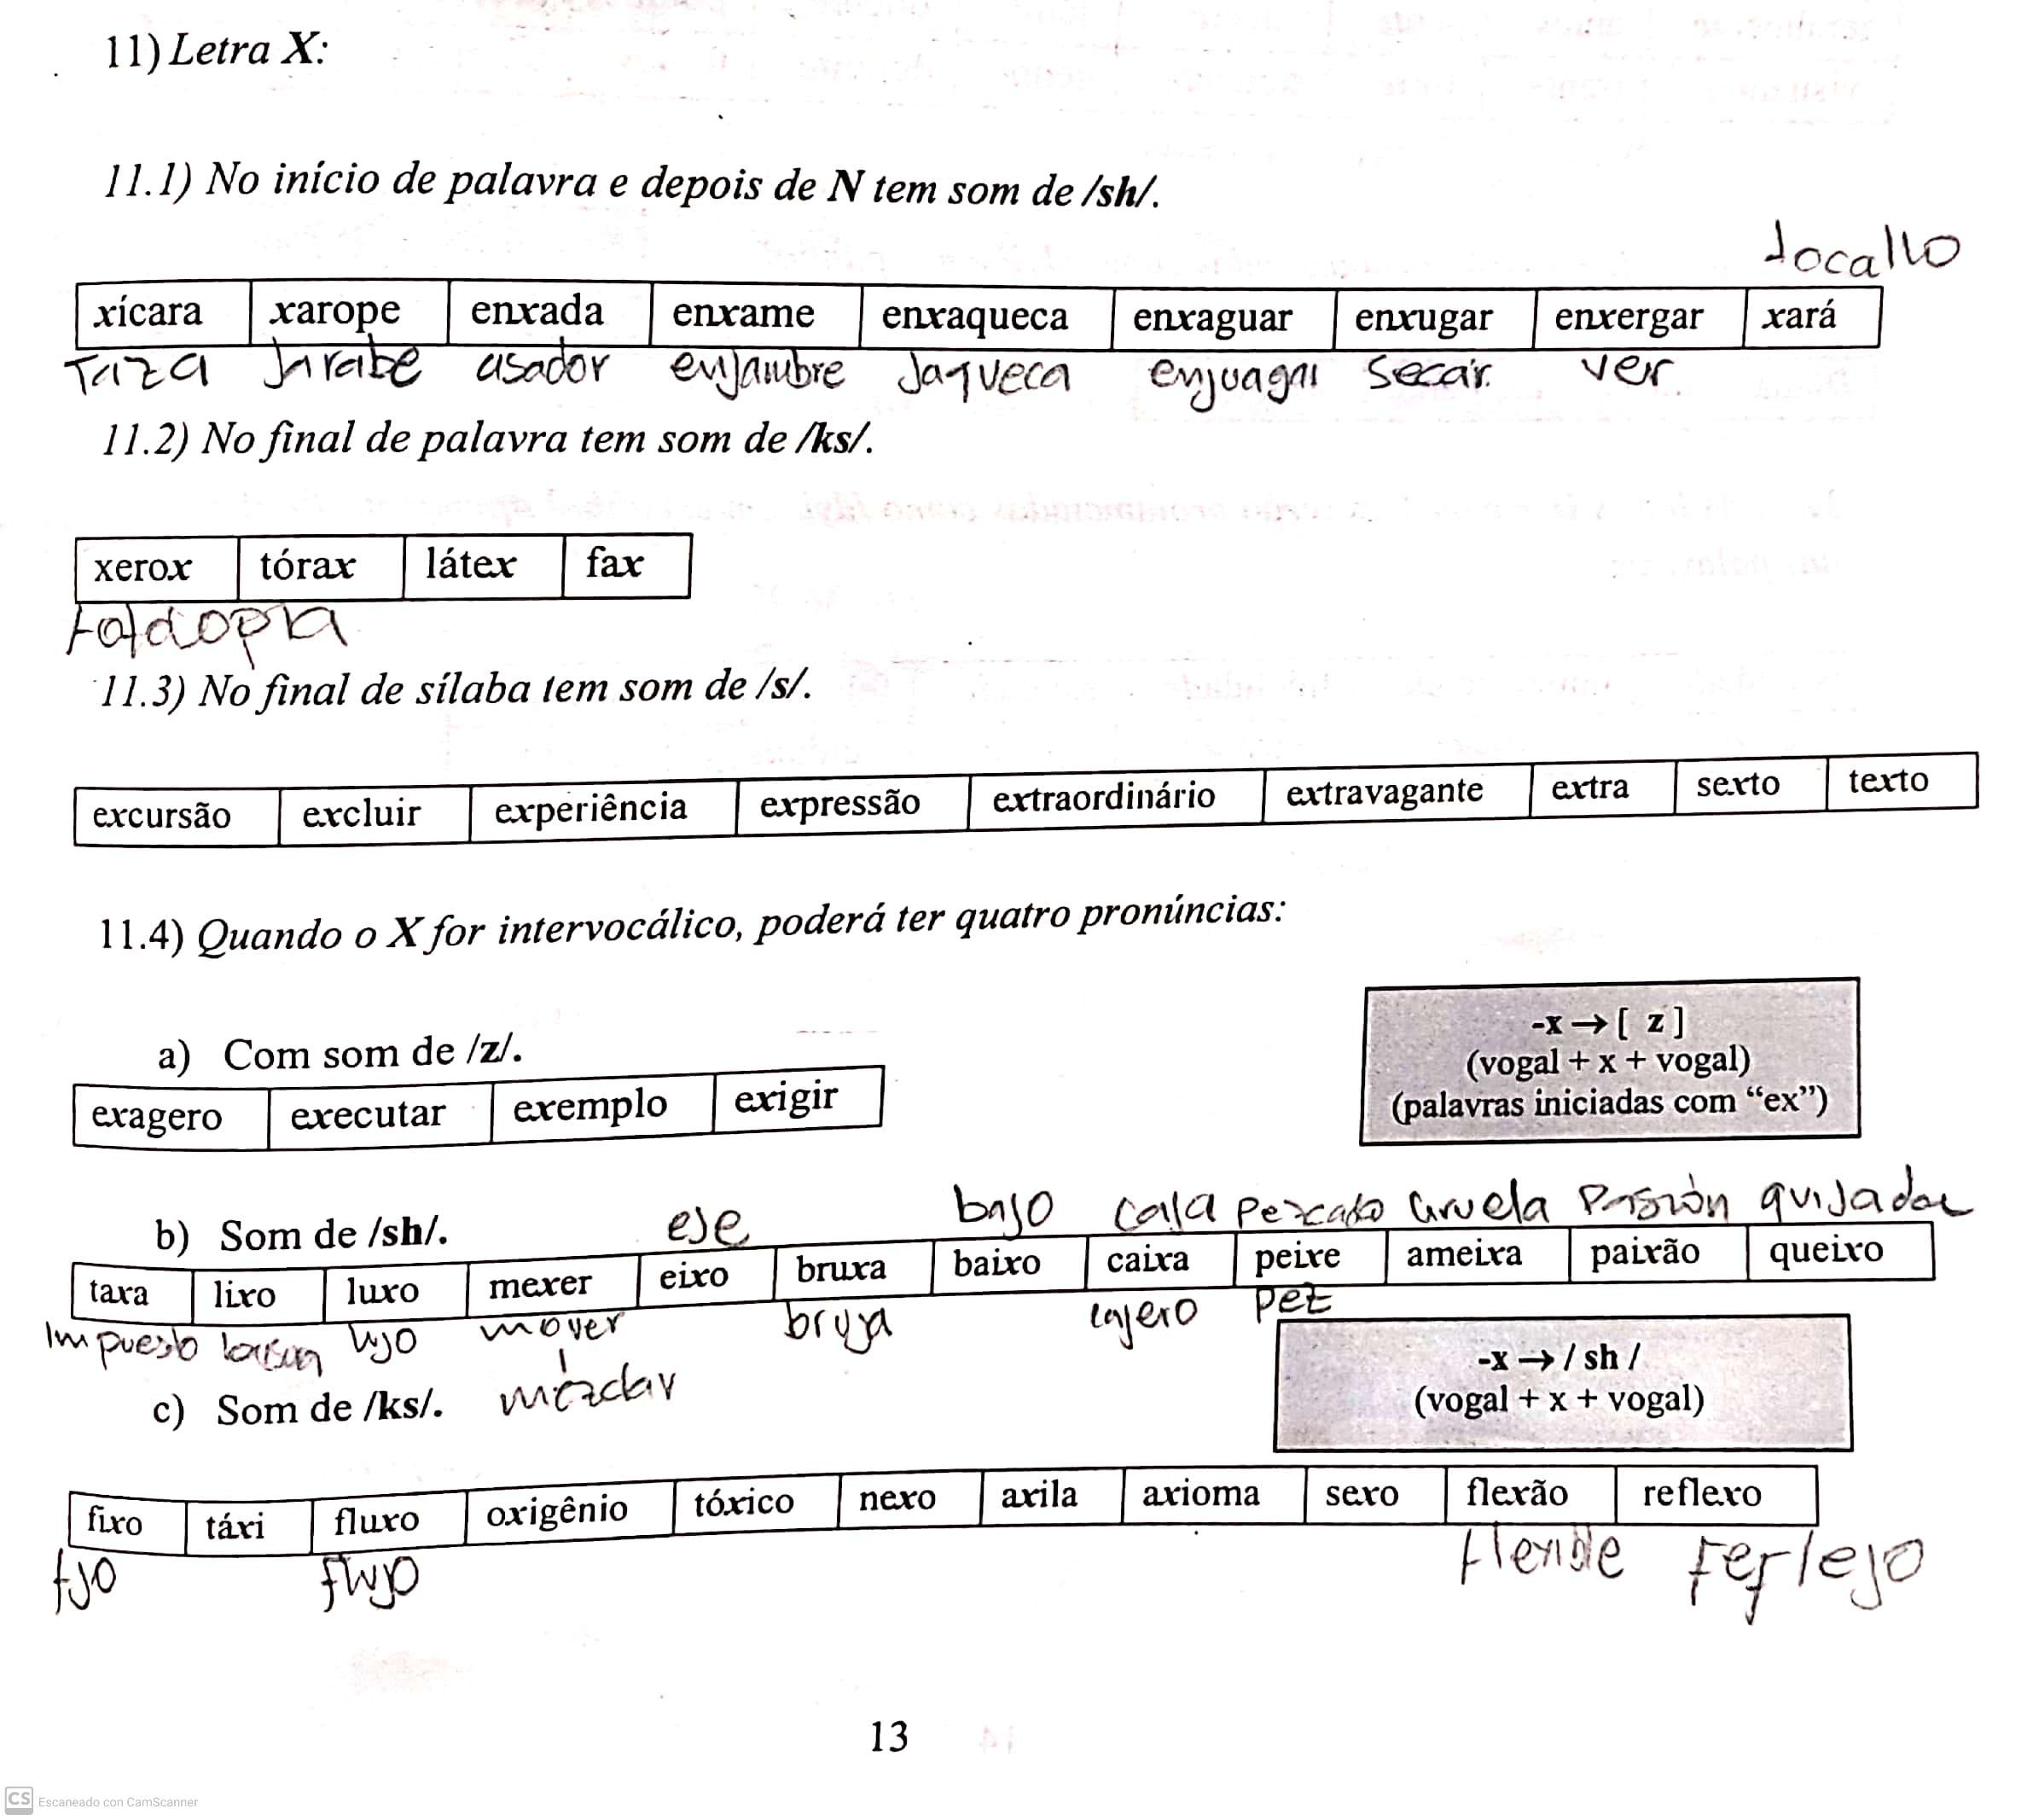 11) Letra X:
11.1) No início de palavra e depois de N tem som de /sh/.
tocallo
xícara xarope enxada enxame enxaqueca enxaguar enxugar enxergar xará
Taza Jarabe asador enjambre Jaqueca enjuagar secar. ver.
11.2) No final de palavra tem som de /ks/.
xerox tórax látex fax
11.3) No final de sílaba tem som de /s/.
excursão excluir experiência expressão extraordinário extravagante extra sexto texto
11.4) Quando o X for intervocálico, poderá ter quatro pronúncias:
-x → [ z ]
(vogal + x + vogal)
(palavras iniciadas com “ex”)
a) Com som de /z/.
exagero executar exemplo exigir
b) Som de /sh/.
eje bajo caja pexcado ciruela Pasión quijada
taxa lixo luxo mexer eixo bruxa baixo caixa peixe ameixa paixão queixo
Impuesto lujo mover bruja cajero pez
mezclar
-x → / sh /
(vogal + x + vogal)
c) Som de /ks/.
fixo táxi fluxo oxigênio tóxico nexo axila axioma sexo flexão reflexo
fijo flujo flexible
13
CS Escaneado con CamScanner